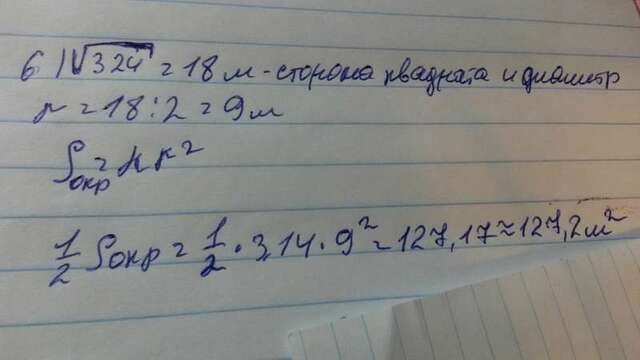 6) √324 = 18 м - сторона квадрата и диаметр
r = 18 : 2 = 9 м
Sокр = πr²
1/2 Sокр = 1/2 · 3,14 · 9² = 127,17 ≈ 127,2 м²